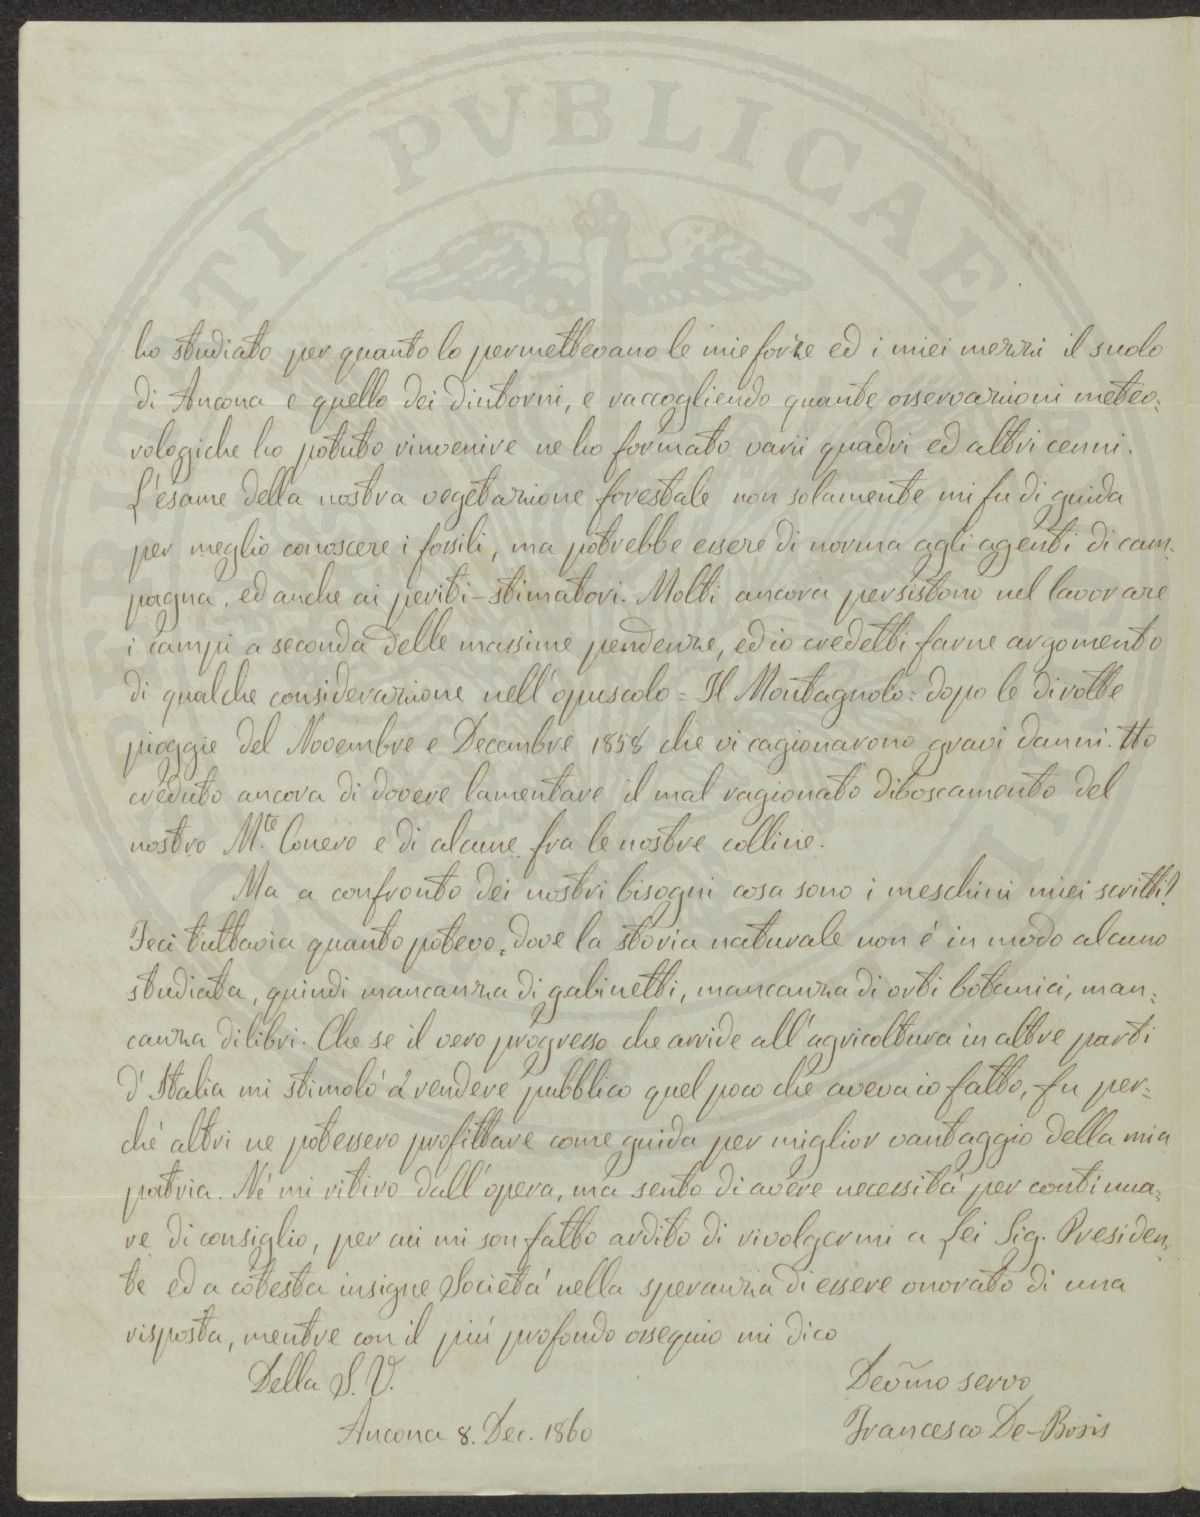 PRAESTANTI PVBLICAE
ho studiato per quanto lo permettevano le mie forze ed i miei mezzi il suolo
di Ancona e quello dei dintorni, e raccogliendo quante osservazioni meteo=
rologiche ho potuto rinvenire ne ho formato varii quadri ed altri cenni.
L'esame della nostra vegetazione forestale non solamente mi fu di guida
per meglio conoscere i fossili, ma potrebbe essere di norma agli agenti di cam=
pagna, ed anche ai periti-stimatori. Molti ancora persistono nel lavorare
i campi a seconda delle massime pendenze, ed io credetti farne argomento
di qualche considerazione nell'opuscolo = Il Montagnolo = dopo le dirotte
pioggie del Novembre e Decembre 1858 che vi cagionarono gravi danni. Ho
creduto ancora di dovere lamentare il mal ragionato diboscamento del
nostro M.te Conero e di alcune fra le nostre colline.
Ma a confronto dei nostri bisogni cosa sono i meschini miei scritti?
Feci tuttavia quanto potevo, dove la storia naturale non é in modo alcuno
studiata, quindi mancanza di gabinetti, mancanza di orti botanici, man=
canza di libri. Che se il vero progresso che arride all'agricoltura in altre parti
d'Italia mi stimoló a rendere pubblico quel poco che aveva io fatto, fu per=
ché altri ne potessero profittare come guida per miglior vantaggio della mia
patria. Né mi ritiro dall'opera, ma sento di avere necessitá per continua=
re di consiglio, per cui mi son fatto ardito di rivolgermi a Lei Sig. Presiden=
te ed a cotesta insigne Societá nella speranza di essere onorato di una
risposta, mentre con il piú profondo ossequio mi dico
Della S. V.
Devõmo servo
Ancona 8. Dec. 1860
Francesco De-Bosis